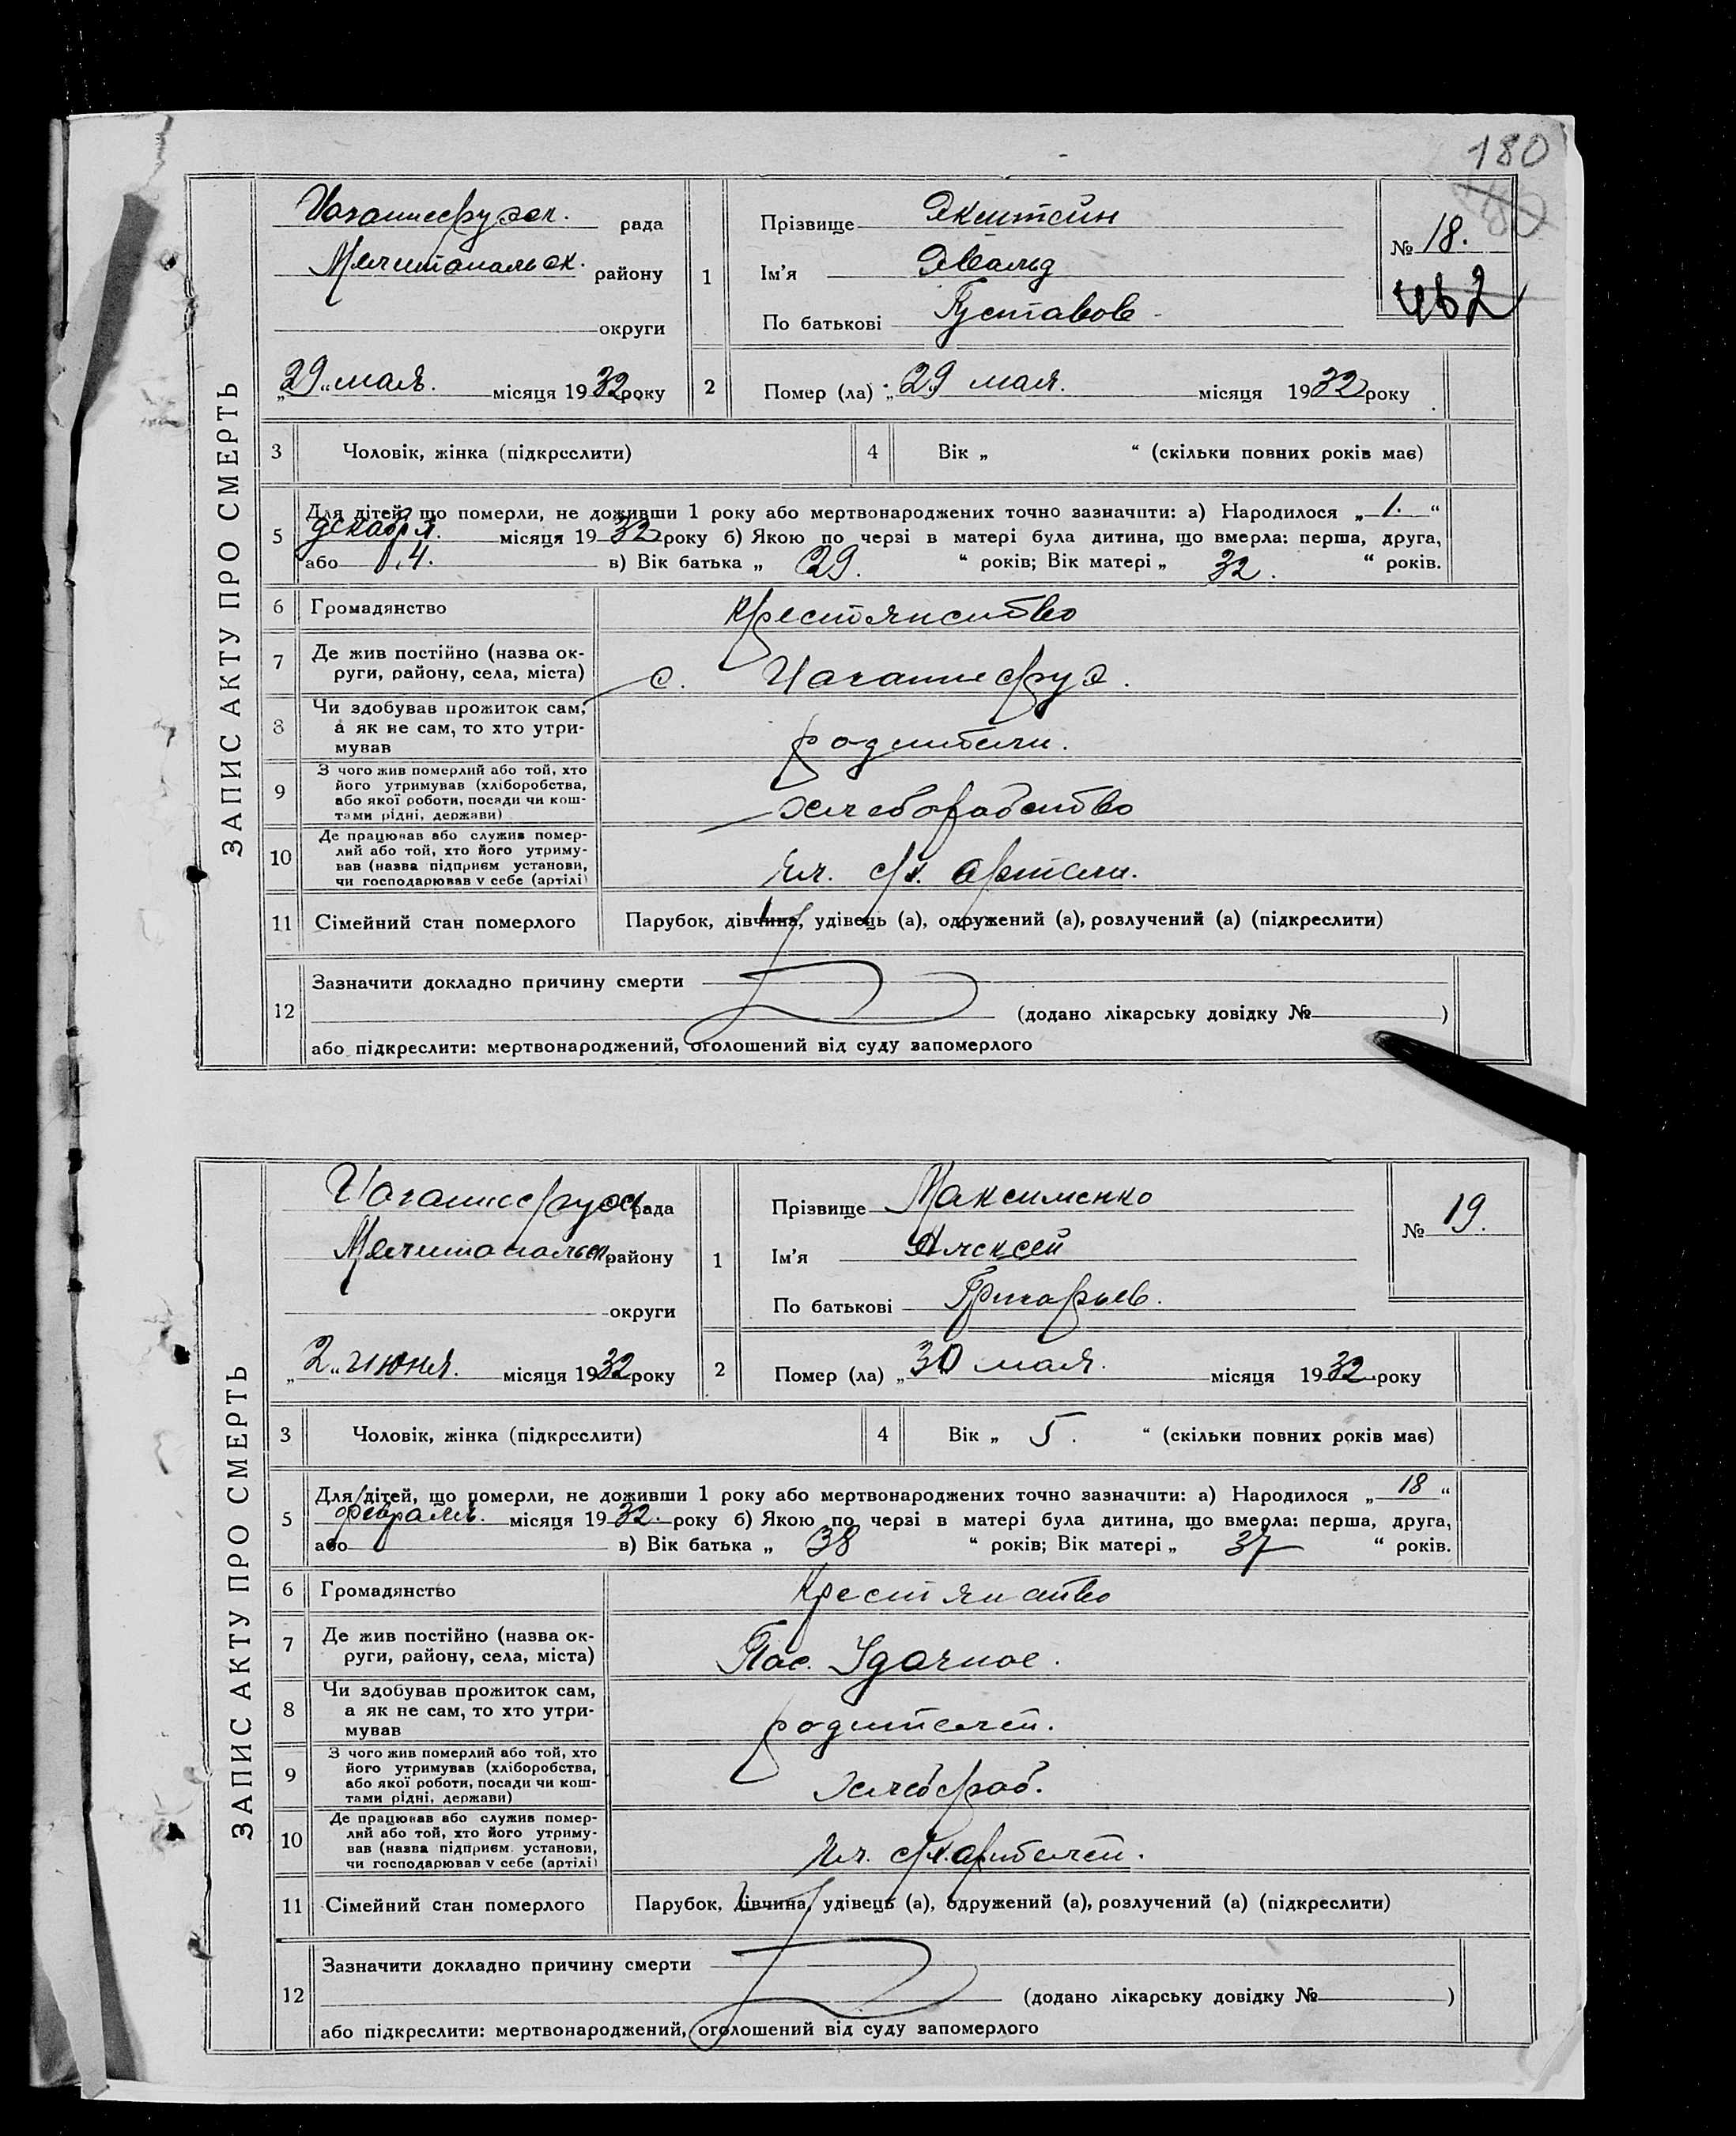 180
180
ЗАПИС АКТУ ПРО СМЕРТЬ
Иоганнесрузск. рада
Мелитопальск. району
округи
„29“ мая. місяця 1932 року
1
Прізвище Экштейн
Ім’я Эвальд
По батькові Густавов
№ 18.
462
2
Помер (ла) „29 мая. місяця 1932 року
3 Чоловік, жінка (підкреслити)
4 Вік „ “ (скільки повних років має)
5 Для дітей, що померли, не доживши 1 року або мертвонароджених точно зазначити: а) Народилося „1.“
декабря. місяця 1932 року б) Якою по черзі в матері була дитина, що вмерла: перша, друга,
або 4. в) Вік батька „ 29. “ років; Вік матері „ 32. “ років.
6 Громадянство Крестянство
7 Де жив постійно (назва ок-
руги, району, села, міста) с. Иоганнесруэ.
8 Чи здобував прожиток сам,
а як не сам, то хто утри-
мував родители.
9 З чого жив померлий або той, хто
його утримував (хліборобства,
або якої роботи, посади чи кош-
тами рідні, держави) Хлеборобство
10 Де працював або служив помер-
лий або той, хто його утриму-
вав (назва підприєм установи,
чи господарював у себе (артілі) Чл. с/х. артели.
11 Сімейний стан померлого Парубок, дівчина, удівець (а), одружений (а), розлучений (а) (підкреслити)
12 Зазначити докладно причину смерти
(додано лікарську довідку № )
або підкреслити: мертвонароджений, оголошений від суду запомерлого
ЗАПИС АКТУ ПРО СМЕРТЬ
рада
району
округи
„2“ июня. місяця 1932 року
1
Прізвище Максименко
Ім’я Алексей
По батькові Григорьев.
№ 19.
2
Помер (ла) „30 мая. місяця 1932 року
3 Чоловік, жінка (підкреслити)
4 Вік „ 5. “ (скільки повних років має)
5 Для дітей, що померли, не доживши 1 року або мертвонароджених точно зазначити: а) Народилося „18“
февраля. місяця 1932. року б) Якою по черзі в матері була дитина, що вмерла: перша, друга,
або в) Вік батька „ 38 “ років; Вік матері „ 37 “ років.
6 Громадянство Крестянство
7 Де жив постійно (назва ок-
руги, району, села, міста) Пос. Удачное.
8 Чи здобував прожиток сам,
а як не сам, то хто утри-
мував родителей.
9 З чого жив померлий або той, хто
його утримував (хліборобства,
або якої роботи, посади чи кош-
тами рідні, держави) Хлебороб.
10 Де працював або служив помер-
лий або той, хто його утриму-
вав (назва підприєм. установи,
чи господарював у себе (артілі) Чл. с/х. артелей.
11 Сімейний стан померлого Парубок, дівчина, удівець (а), одружений (а), розлучений (а) (підкреслити)
12 Зазначити докладно причину смерти
(додано лікарську довідку № )
або підкреслити: мертвонароджений, оголошений від суду запомерлого